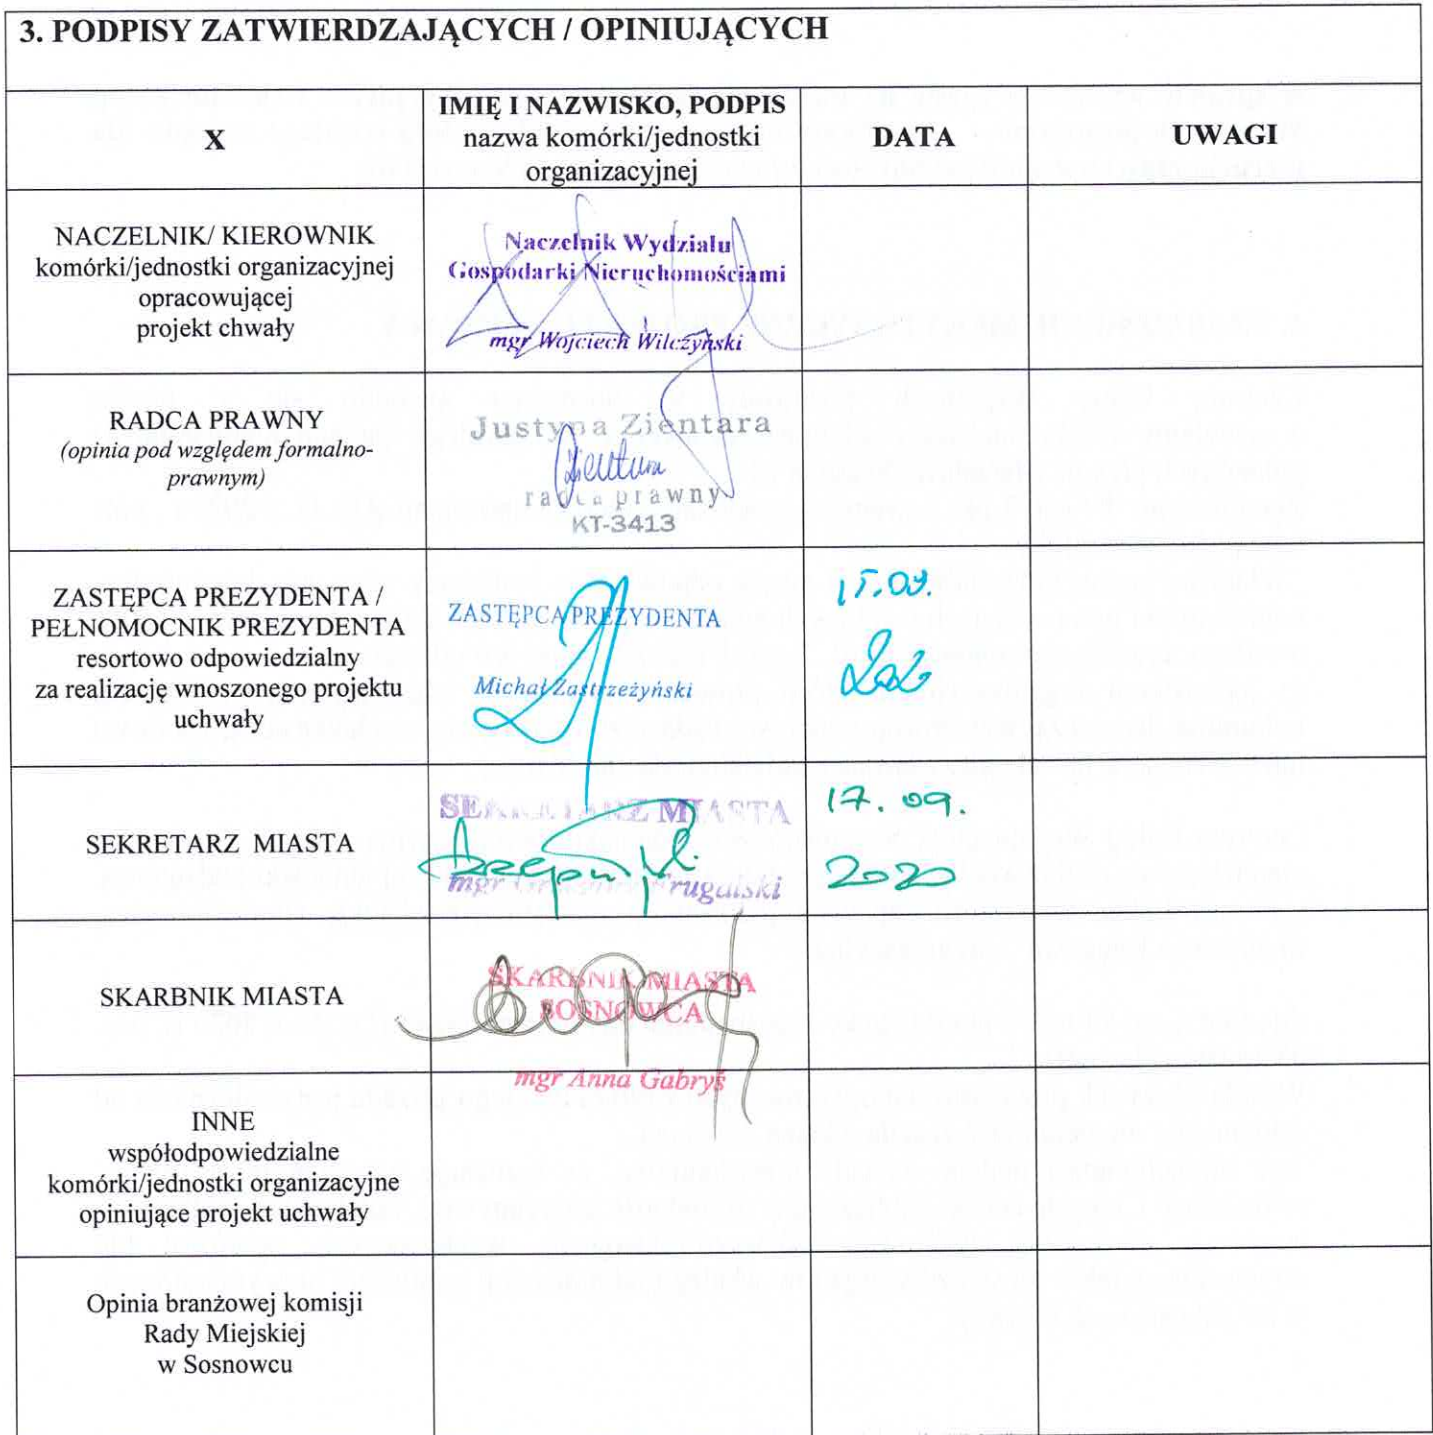 3. PODPISY ZATWIERDZAJĄCYCH / OPINIUJĄCYCH
X
IMIĘ I NAZWISKO, PODPIS
nazwa komórki/jednostki
organizacyjnej
DATA
UWAGI
NACZELNIK/ KIEROWNIK
komórki/jednostki organizacyjnej
opracowującej
projekt chwały
Naczelnik Wydziału
Gospodarki Nieruchomościami
mgr Wojciech Wilczyński
RADCA PRAWNY
(opinia pod względem formalno-
prawnym)
Justyna Zientara
radca prawny
KT-3413
ZASTĘPCA PREZYDENTA /
PEŁNOMOCNIK PREZYDENTA
resortowo odpowiedzialny
za realizację wnoszonego projektu
uchwały
ZASTĘPCA PREZYDENTA
Michał Zastrzeżyński
15.09.
SEKRETARZ MIASTA
SEKRETARZ MIASTA
mgr Frugalski
17. 09.
2020
SKARBNIK MIASTA
SKARBNIK MIASTA
SOSNOWCA
mgr Anna Gabryś
INNE
współodpowiedzialne
komórki/jednostki organizacyjne
opiniujące projekt uchwały
Opinia branżowej komisji
Rady Miejskiej
w Sosnowcu